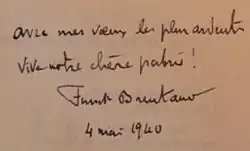 avec mes vœux les plus ardents
vive notre chère patrie !
Funck Brentano
4 mai 1940